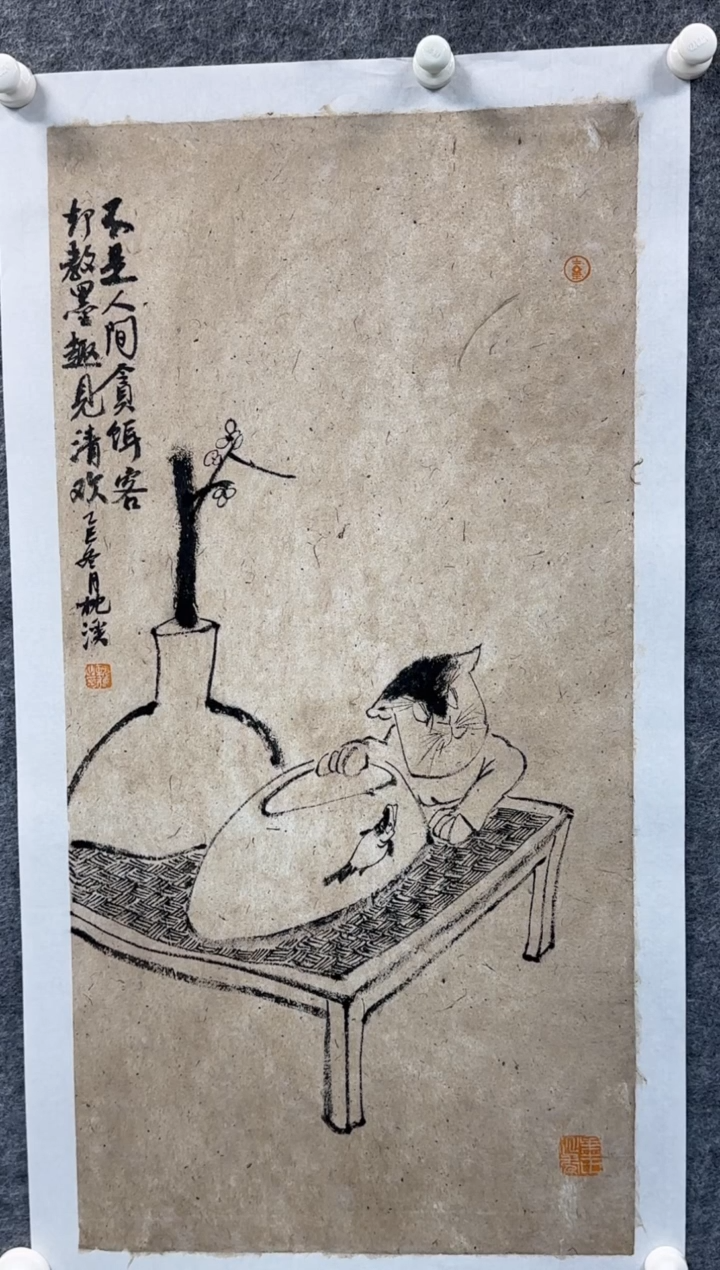 不是人间貪饵客
却教墨趣見清欢
乙巳冬月枕溪